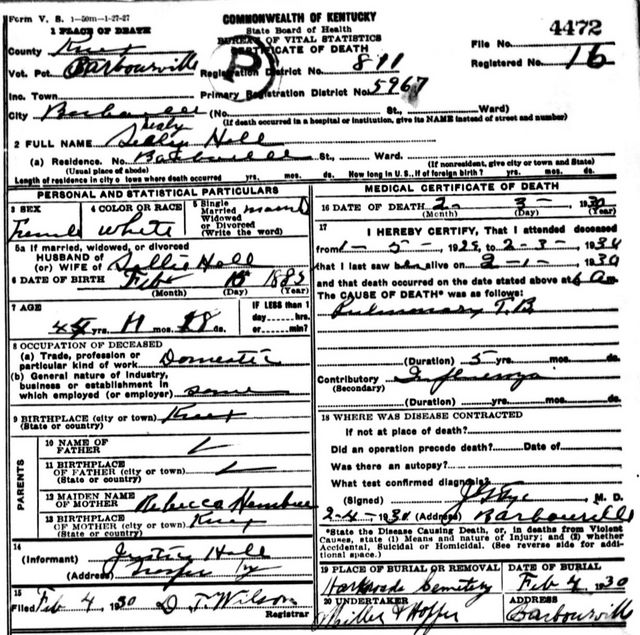 Form V. S. 1-50m-1-27-27
COMMONWEALTH OF KENTUCKY
State Board of Health
BUREAU OF VITAL STATISTICS
CERTIFICATE OF DEATH
4472
File No.
Registered No. 16
1 PLACE OF DEATH
County Knox
Vot. Pct. Barbourville
Registration District No. 811
Inc. Town
Primary Registration District No. 5967
City (No. St., Ward)
(If death occurred in a hospital or institution, give its NAME instead of street and number)
2 FULL NAME Hall
(a) Residence. No. Barbourville St., Ward.
(Usual place of abode)
(If nonresident, give city or town and State)
Length of residence in city or town where death occurred yrs. mos. ds. How long in U. S., if of foreign birth? yrs. mos. ds.
PERSONAL AND STATISTICAL PARTICULARS
3 SEX Female
4 COLOR OR RACE White
5 Single Married Widowed or Divorced (Write the word)
5a If married, widowed, or divorced
HUSBAND of
(or) WIFE of Hall
6 DATE OF BIRTH Feb 1885
(Month) (Day) (Year)
7 AGE
44 yrs. 11 mos. 18 ds.
IF LESS than 1 day, hrs. or min?
8 OCCUPATION OF DECEASED
(a) Trade, profession or particular kind of work Domestic
(b) General nature of industry, business or establishment in which employed (or employer) same
9 BIRTHPLACE (city or town) Knox
(State or country)
PARENTS
10 NAME OF FATHER
11 BIRTHPLACE OF FATHER (city or town)
(State or country)
12 MAIDEN NAME OF MOTHER Rebecca
13 BIRTHPLACE OF MOTHER (city or town) Knox
(State or country)
14
(Informant) Hall
(Address) Ky
15
Filed Feb 4 1930 D T Wilson
Registrar
MEDICAL CERTIFICATE OF DEATH
16 DATE OF DEATH 2- 3- 1930
(Month) (Day) (Year)
17 I HEREBY CERTIFY, That I attended deceased
from 1-5-1929, to 2-3-, 1930
that I last saw alive on 2-1-, 1930
and that death occurred on the date stated above at 6 a m.
The CAUSE OF DEATH* was as follows:
Pulmonary T.B
(Duration) 5 yrs. mos. ds.
Contributory Influenza
(Secondary)
(Duration) yrs. mos. ds.
18 WHERE WAS DISEASE CONTRACTED
If not at place of death?
Did an operation precede death? Date of
Was there an autopsy?
What test confirmed diagnosis?
(Signed) M. D.
2-4-, 1930 (Address) Barbourville
*State the Disease Causing Death, or, in deaths from Violent
Causes, state (1) Means and nature of Injury; and (2) whether
Accidental, Suicidal or Homicidal. (See reverse side for addi-
tional space.)
19 PLACE OF BURIAL OR REMOVAL
Cemetery
DATE OF BURIAL
Feb 4 1930
20 UNDERTAKER
Miller & Hopper
ADDRESS
Barbourville